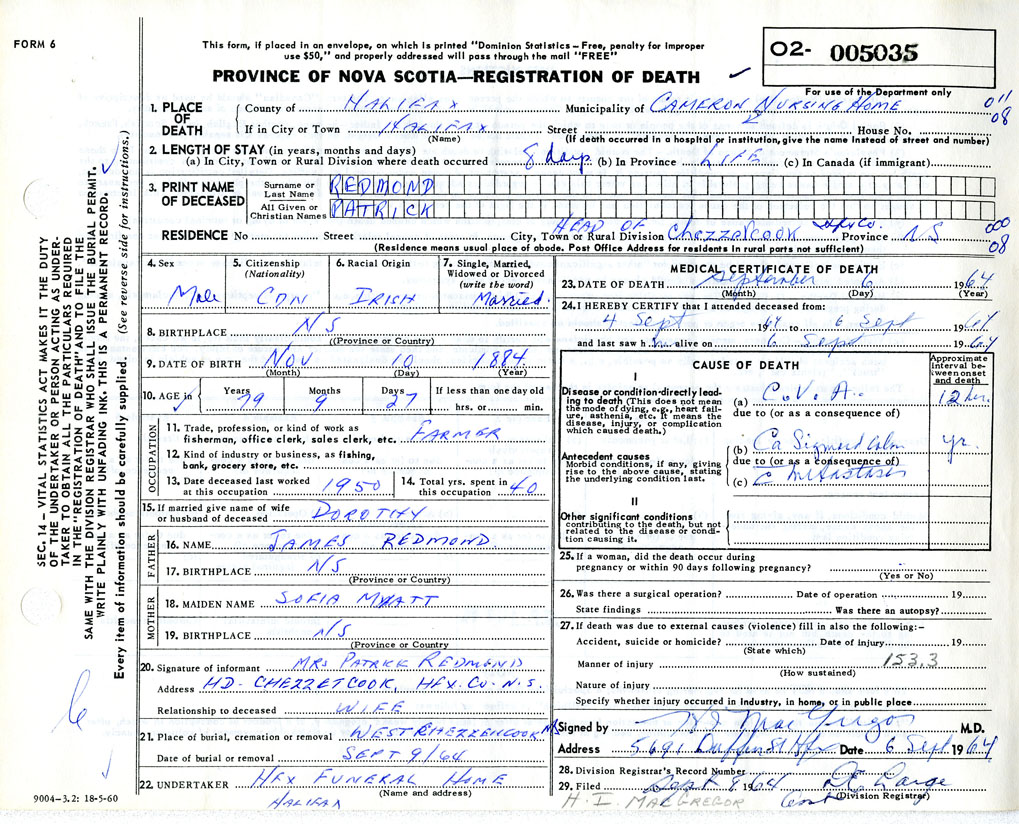 FORM 6
This form, if placed in an envelope, on which is printed "Dominion Statistics – Free, penalty for improper
use $50," and properly addressed will pass through the mail "FREE"
PROVINCE OF NOVA SCOTIA—REGISTRATION OF DEATH ✓
02- 005035
For use of the Department only
SEC. 14 – VITAL STATISTICS ACT MAKES IT THE DUTY
OF THE UNDERTAKER OR PERSON ACTING AS UNDER-
TAKER TO OBTAIN ALL THE PARTICULARS REQUIRED
IN THE "REGISTRATION OF DEATH" AND TO FILE THE
SAME WITH THE DIVISION REGISTRAR WHO SHALL ISSUE THE BURIAL PERMIT.
WRITE PLAINLY WITH UNFADING INK. THIS IS A PERMANENT RECORD.
Every item of information should be carefully supplied. (See reverse side for instructions.)
1. PLACE OF DEATH
County of HALIFAX Municipality of CAMERON NURSING HOME 011
If in City or Town HALIFAX Street House No. 08
(Name) (If death occurred in a hospital or institution, give the name instead of street and number)
2. LENGTH OF STAY (in years, months and days)
(a) In City, Town or Rural Division where death occurred 8 days (b) In Province LIFE (c) In Canada (if immigrant)
3. PRINT NAME OF DECEASED
Surname or Last Name REDMOND
All Given or Christian Names PATRICK
RESIDENCE No Street City, Town or Rural Division HEAD OF Chezzetcook Hfx Co. Province NS 000 08
(Residence means usual place of abode. Post Office Address for residents in rural parts not sufficient)
4. Sex Male
5. Citizenship (Nationality) CDN
6. Racial Origin IRISH
7. Single, Married, Widowed or Divorced (write the word) Married.
8. BIRTHPLACE NS
(Province or Country)
9. DATE OF BIRTH NOV 10 1884
(Month) (Day) (Year)
10. AGE in Years 79 Months 9 Days 27 If less than one day old hrs. or min.
OCCUPATION
11. Trade, profession, or kind of work as
fisherman, office clerk, sales clerk, etc. FARMER
12. Kind of industry or business, as fishing,
bank, grocery store, etc.
13. Date deceased last worked at this occupation 1950
14. Total yrs. spent in this occupation 40
15. If married give name of wife or husband of deceased DOROTHY
FATHER
16. NAME JAMES REDMOND.
17. BIRTHPLACE NS
(Province or Country)
MOTHER
18. MAIDEN NAME SOFIA MYATT
19. BIRTHPLACE N/S
(Province or Country)
20. Signature of informant MRS PATRICK REDMOND
Address HD- CHEZZETCOOK, HFX. CO- N.S.
Relationship to deceased WIFE
21. Place of burial, cremation or removal WEST CHEZZENCOOK NS
Date of burial or removal SEPT 9/64
22. UNDERTAKER HFX FUNERAL HOME
(Name and address)
HALIFAX
9004-3.2: 18-5-60
MEDICAL CERTIFICATE OF DEATH
23. DATE OF DEATH September 6 1964
(Month) (Day) (Year)
24. I HEREBY CERTIFY that I attended deceased from:
4 Sept 1964 to 6 Sept 1964
and last saw him alive on 6 Sept 1964
CAUSE OF DEATH
Approximate Interval between onset and death
I
Disease or condition directly leading to death (This does not mean the mode of dying, e.g., heart failure, asthenia, etc. It means the disease, injury, or complication which caused death.)
(a) C.V.A. 12 hr.
due to (or as a consequence of)
Antecedent causes
Morbid conditions, if any, giving rise to the above cause, stating the underlying condition last.
(b) Ca Sigmoid Colon yr.
due to (or as a consequence of)
(c) c metastases
II
Other significant conditions
contributing to the death, but not related to the disease or condition causing it.
25. If a woman, did the death occur during
pregnancy or within 90 days following pregnancy?
(Yes or No)
26. Was there a surgical operation? Date of operation 19
State findings Was there an autopsy?
27. If death was due to external causes (violence) fill in also the following:–
Accident, suicide or homicide? Date of injury 19
(State which)
Manner of injury 153.3
(How sustained)
Nature of injury
Specify whether injury occurred in industry, in home, or in public place
Signed by H I MacGregor M.D.
Address 5691 Duffus St Hfx Date 6 Sept 1964
28. Division Registrar's Record Number
29. Filed Sept 9 1964
(Division Registrar)
H. I. MACGREGOR